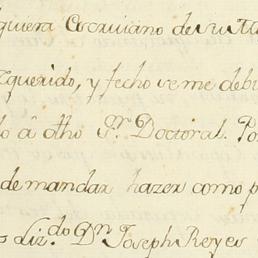 quiera Escriviano de su M
querido, y fecho se me deb
lo â dho Sr. Doctoral. Po
demandar hazer como p
Liz.do Dn Joseph Reyes